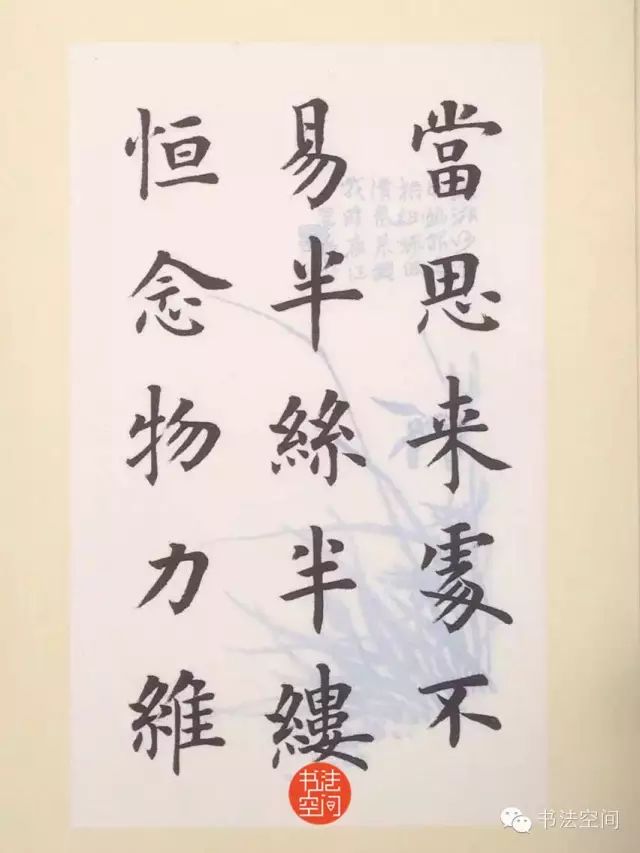 當思来處不
易半絲半縷
恒念物力維
书法
空间
书法空间